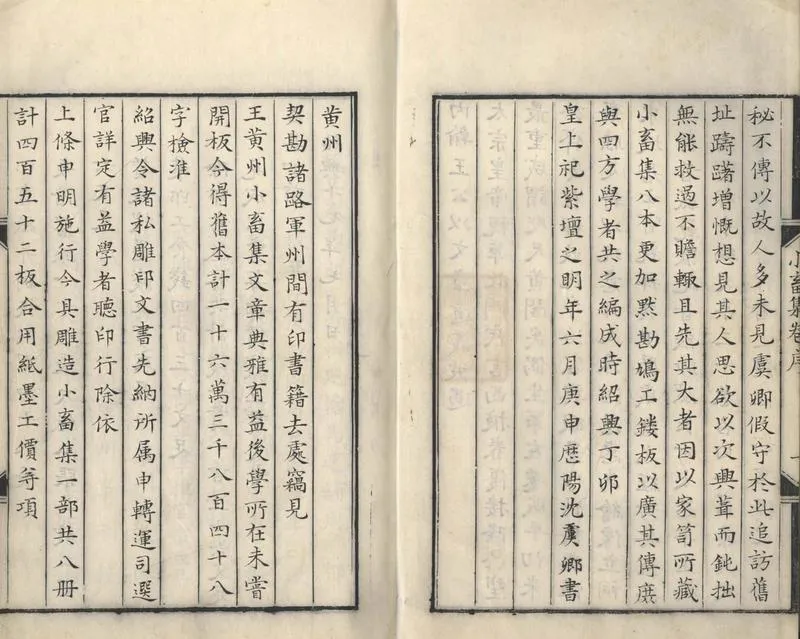 小畜集卷序
秘不傳以故人多未見虞卿假守於此追訪舊
址躊躇增慨想見其人思欲以次興葺而鈍拙
無能救過不贍輒且先其大者因以家笥所藏
小畜集八本更加㸃勘鳩工鏤板以廣其傳庶
與四方學者共之編成時紹興丁卯
皇上祀紫壇之明年六月庚申歷陽沈虞卿書
黄州
契勘諸路軍州間有印書籍去處竊見
王黄州小畜集文章典雅有益後學所在未嘗
開板今得舊本計一十六萬三千八百四十八
字撿准
紹興令諸私雕印文書先納所属申轉運司選
官詳定有益學者聽印行除依
上條申明施行今具雕造小畜集一部共八册
計四百五十二板合用紙墨工價䒭項